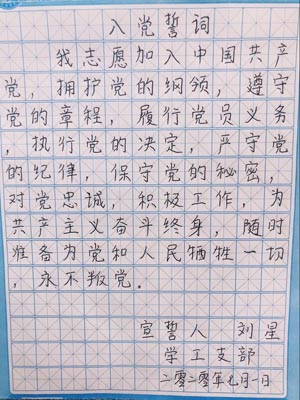 入党誓词
我志愿加入中国共产
党，拥护党的纲领，遵守
党的章程，履行党员义务
，执行党的决定，严守党
的纪律，保守党的秘密，
对党忠诚，积极工作，为
共产主义奋斗终身，随时
准备为党和人民牺牲一切
，永不叛党．
宣誓人 刘星
学工支部
二零二零年七月一日